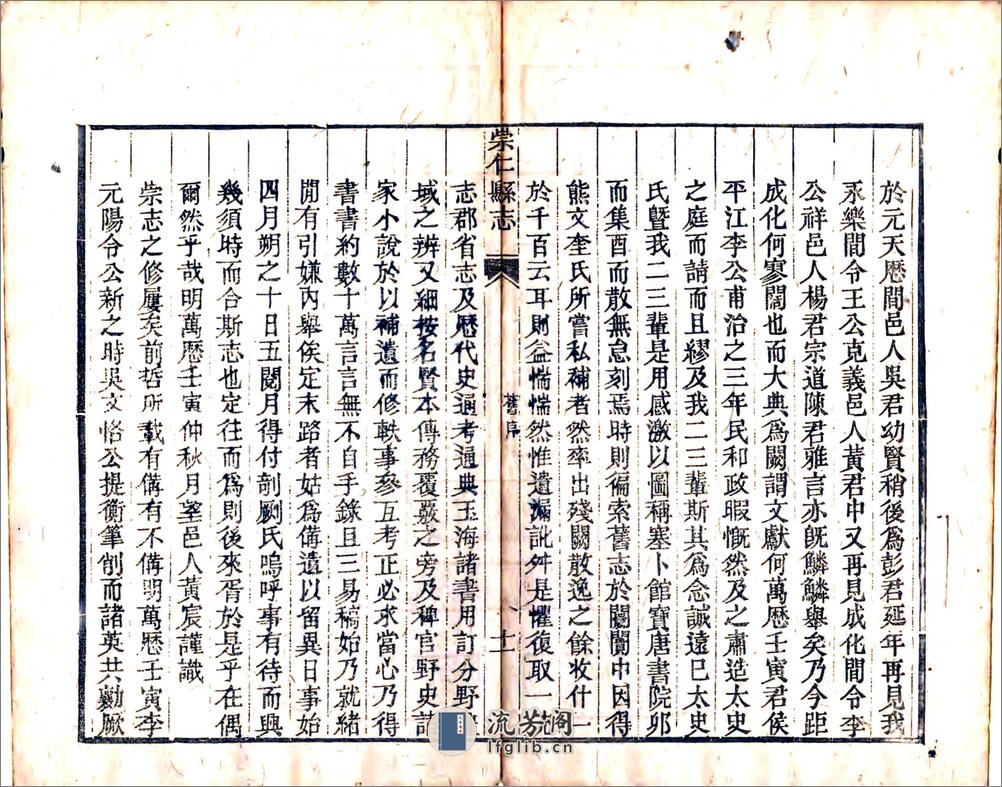 於元天曆間邑人吳君幼賢稍後爲彭君延年再見我
永樂間令王公克義邑人黃君中又再見成化間令李
公祥邑人楊君宗道陳君雅言亦既鱗鱗舉矣乃今距
成化何寥闊也而大典爲闕謂文獻何萬曆壬寅君侯
平江李公甫治之三年民和政暇慨然及之肅造太史
之庭而請而且繆及我二三輩斯其爲念誠遠巳太史
氏暨我二三輩是用感激以圖稱塞卜館寶唐書院夘
而集酉而散無怠刻焉時則徧索舊志於闤闠中因得
熊文奎氏所嘗私補者然率出殘闕散逸之餘收什一
於千百云耳則益惴惴然惟遺漏訛舛是懼復取一
崇仁縣志
舊序
十一
志郡省志及歷代史通考通典玉海諸書用訂分野
域之辨又細按名賢本傳務覆嚴之旁及稗官野史諸
家小說於以補遺而修軼事參互考正必求當心乃得
書書約數十萬言言無不自手錄且三易稿始乃就緒
間有引嫌內舉俟定末路者姑爲備遺以留異日事始
四月朔之十日五閱月得付剞劂氏嗚呼事有待而興
幾須時而合斯志也定往而爲則後來胥於是乎在偶
爾然乎哉明萬曆壬寅仲秋月望邑人黃宸謹識
崇志之修屢矣前哲所載有備有不備明萬曆壬寅李
元陽令公新之時吳文恪公提衡筆削而諸英共勷厥
流芳阁
lfglib.cn